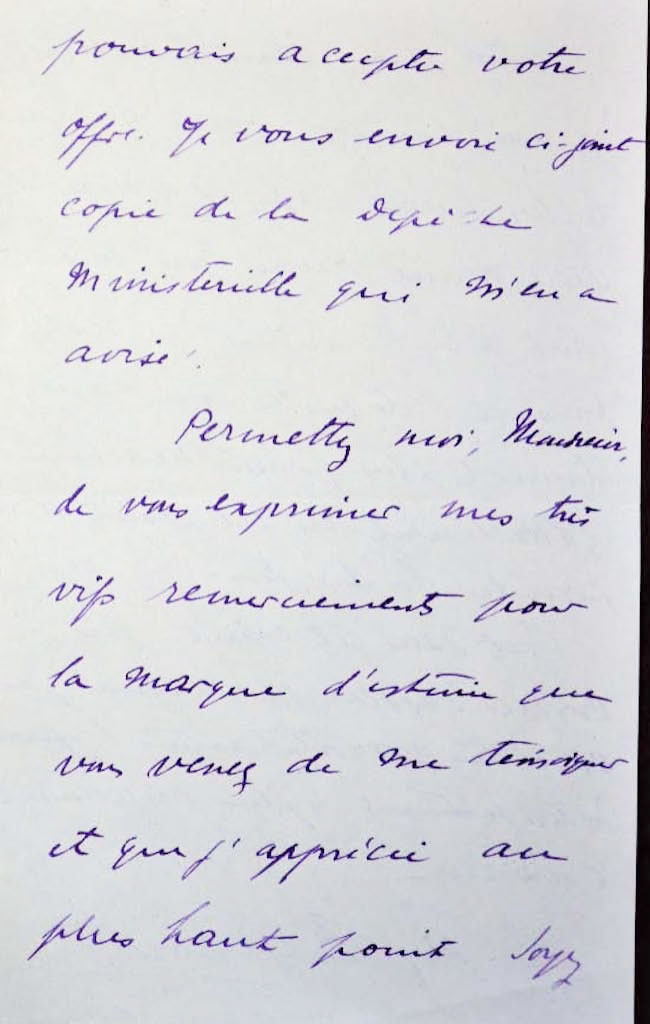 pouvais accepter votre
offre. Je vous envoie ci-joint
copie de la Dépêche
Ministerielle qui m'en a
avisé.
Permettez moi, Monsieur,
de vous exprimer mes très
vifs remerciements pour
la marque d'estime que
vous venez de me témoigner
et que j'apprécie au
plus haut point Soyez